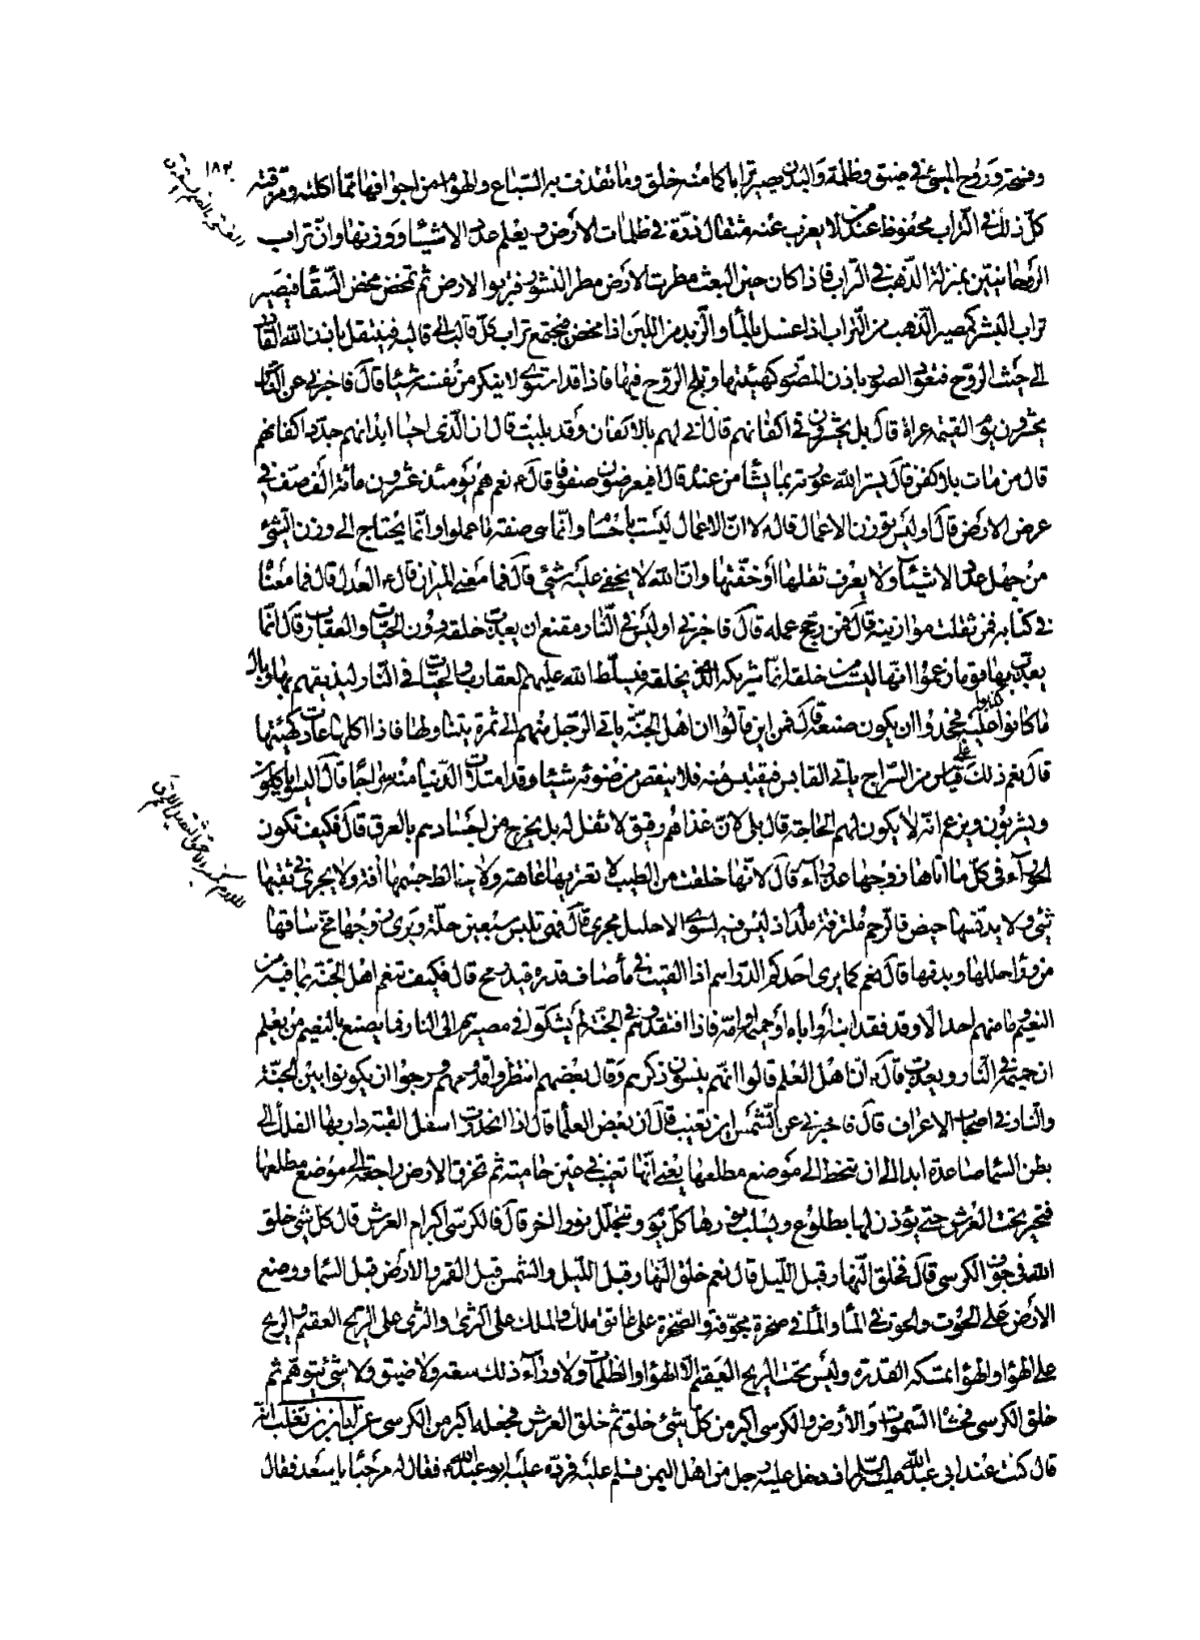 وفسحة وروح المسئ في ضيق وظلمة والبدن يصير ترابا كما منه خلق وما تقذف به السباع والهوام من اجوافها مما اكلته ومزقته
كل ذلك في التراب محفوظ عند من لا يعزب عنه مثقال ذرة في ظلمات الارض ويعلم عدد الاشياء ووزنها وان تراب
الروحانيين بمنزلة الذهب في التراب فاذا كان حين البعث مطرت الارض مطر النشور فتربوا الارض ثم تمخض مخض السقاء فيصير
تراب البشر كمصير الذهب من التراب اذا غسل بالماء والزبد من اللبن اذا مخض فيجتمع تراب كل قالب الى قالبه فينتقل باذن الله القادر
الى حيث الروح فتعود الصور باذن المصور كهيئتها وتلج الروح فيها فاذا قد استوى لا ينكر من نفسه شيئا قال فاخبرني عن الناس
يحشرون يوم القيمة عراة قال بل يحشرون في اكفانهم قال انى لهم بالاكفان وقد بليت قال ان الذى احيا ابدانهم جدد اكفانهم
قال من مات بلا كفن قال يستر الله عورته بما يشاء من عنده قال افيعرضون صفوفا قال ع نعم هم يومئذ عشرون مائة الف صف في
عرض الارض قال اوليس توزن الاعمال قال ع لا ان الاعمال ليست باجسام وانما هى صفة ما عملوا وانما يحتاج الى وزن الشئ
من جهل عدد الاشياء ولا يعرف ثقلها او خفتها وان الله لا يخفى عليه شئ قال فما معنى الميزان قال ع العدل قال فما معناه
في كتابه فمن ثقلت موازينه قال فمن رجح عمله قال فاخبرني اوليس في النار مقنع ان يعذب خلقه بها دون الحيات والعقارب قال انما
يعذب بها قوما زعموا انها ليست من خلقه انما شريكه الذى يخلقه فيسلط الله عليهم العقارب والحيات في النار ليذيقهم بها وبال
ما كانوا عليه فجحدوا ان يكون صنعه قال فمن اين قالوا ان اهل الجنة ياتى الرجل منهم الى ثمرة يتناولها فاذا اكلها عادت كهيئتها
قال نعم ذلك على قياس السراج ياتى القابس فيقتبس منه فلا ينقص من ضوئه شيئا وقد امتلات الدنيا منه سراجا قال اليسوا ياكلون
ويشربون ويزعم انه لا يكون لهم الحاجة قال بلى لان غذاهم رقيق لا ثفل له بل يخرج من اجسادهم بالعرق قال فكيف تكون
الحوراء في كل ما اتاها زوجها عذراء قال لانها خلقت من الطيب لا تعتريها عاهة ولا يخالط جسمها افة ولا يجرى في ثقبها
شئ ولا يدنسها حيض فالرحم ملتزقة ملدم اذ ليس فيه لسوى الاحليل مجرى قال فهى تلبس سبعين حلة ويرى زوجها مخ ساقها
من وراء حللها وبدنها قال نعم كما يرى احدكم الدراهم اذا القيت في ماء صاف قدره قيد رمح قال فكيف تنعم اهل الجنة بما فيه من
النعيم وما منهم احد الا وقد فقد ابنه او اباه او حميمه او امه فاذا افتقدوهم في الجنة لم يشكوا في مصيرهم الى النار فما يصنع بالنعيم من يعلم
ان حميمه في النار ويعذب قال ع ان اهل العلم قالوا انهم ينسون ذكرهم وقال بعضهم انتظروا قدومهم ورجوا ان يكونوا بين الجنة
والنار في اصحاب الاعراف قال فاخبرني عن الشمس اين تغيب قال ان بعض العلماء قال اذا انحدرت اسفل القبة دار بها الفلك الى
بطن السماء صاعدة ابدا الى ان تنحط الى موضع مطلعها يعنى انها تغيب في عين حامية ثم تخرق الارض راجعة الى موضع مطلعها
فتحير تحت العرش حتى يؤذن لها بطلوع ويسلب نورها كل يوم وتتجلل نورا اخر قال فالكرسى اكبر ام العرش قال كل شئ خلق
الله في جوف الكرسى قال فخلق النهار قبل الليل قال نعم خلق النهار قبل الليل والشمس قبل القمر والارض قبل السماء ووضع
الارض على الحوت والحوت في الماء والماء في صخرة مجوفة والصخرة على عاتق ملك والملك على الثرى والثرى على الريح العقيم والريح
على الهواء والهواء تمسكه القدرة وليس تحت الريح العقيم الا الهواء والظلمات ولا وراء ذلك سعة ولا ضيق ولا شئ يتوهم ثم
خلق الكرسى فحشاه السموات والارض والكرسى اكبر من كل شئ خلق ثم خلق العرش فجعله اكبر من الكرسى عن ابان بن تغلب انه
قال كنت عند ابى عبد الله عليه السلام اذ دخل عليه رجل من اهل اليمن فسلم عليه فرد عليه ابو عبد الله ع فقال له مرحبا يا سعد فقال